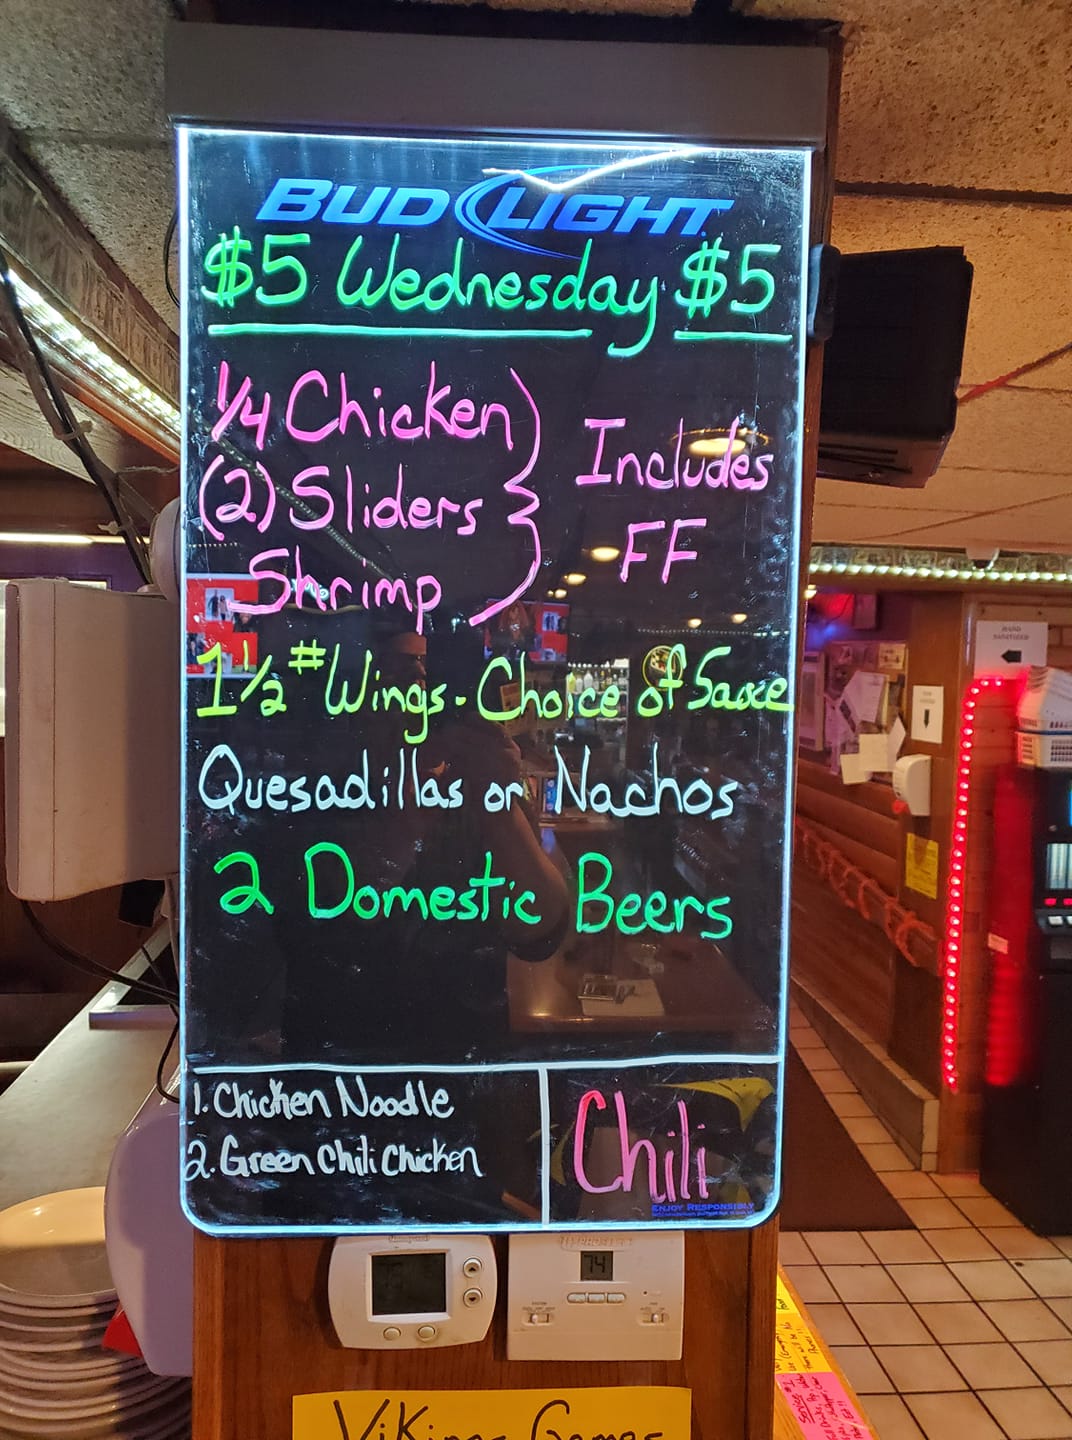 BUD LIGHT
$5 Wednesday $5
1/4 Chicken
(2) Sliders
Shrimp
Includes
FF
1 1/2 # Wings - Choice of Sauce
Quesadillas or Nachos
2 Domestic Beers
1. Chicken Noodle
2. Green Chili Chicken
Chili
ENJOY RESPONSIBLY
74
Vikings Games
HAND
SANITIZER